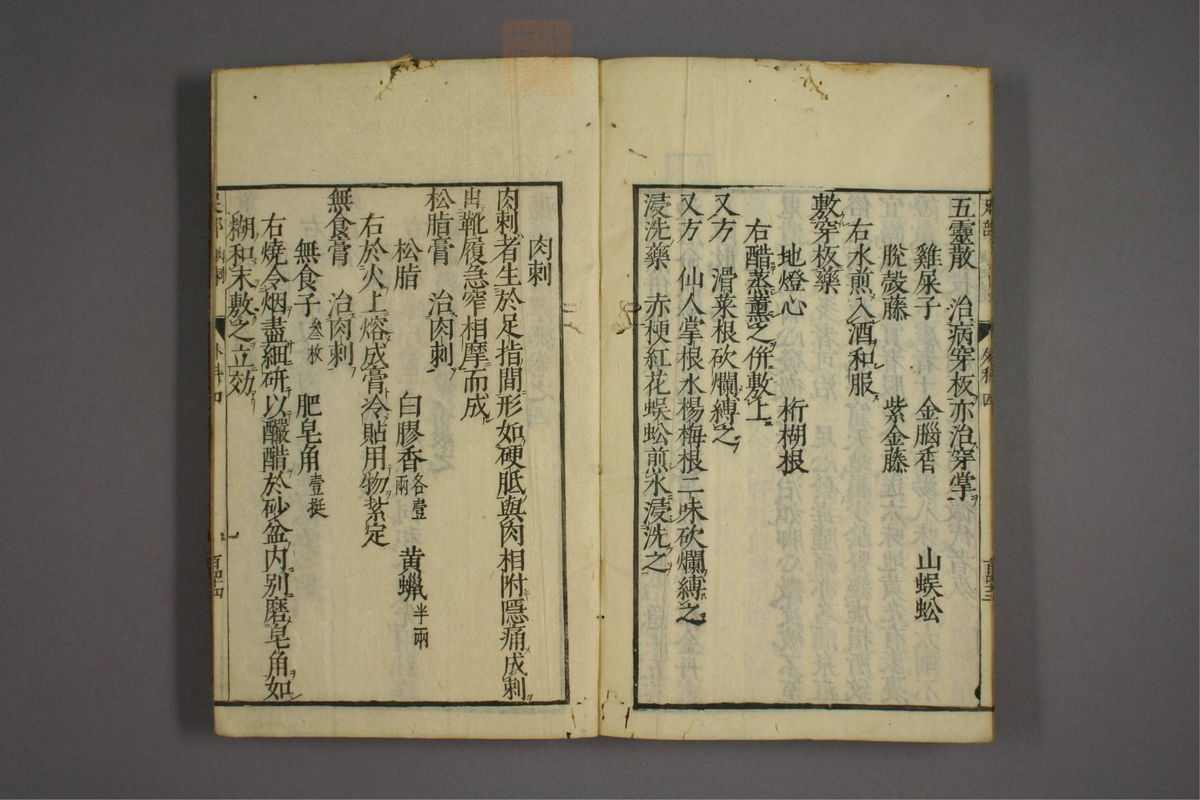 五靈散　治病穿板亦治穿掌
雞屎子　金腦香　山蜈蚣
脫殼藤　紫金藤
右水煎入酒和服
敷穿板藥
地燈心　桁楜根
右醋蒸薰之併敷上
又方　滑菜根砍爛縛之
又方　仙人掌根水楊梅根二味砍爛縛之
浸洗藥　赤梗紅花蜈蚣煎水浸洗之
肉刺
肉刺者生於足指間形如硬胝與肉相附隱痛成刺
由靴履急窄相摩而成
松脂膏　治肉刺
松脂　白膠香各壹兩　黃蠟半兩
右於火上熔成膏冷貼用物紮定
無食膏　治肉刺
無食子叄枚　肥皂角壹挺
右燒令烟盡細研以釅醋於砂盆內別磨皂角如
糊和末敷之立效
肉刺　外科四　百四十四